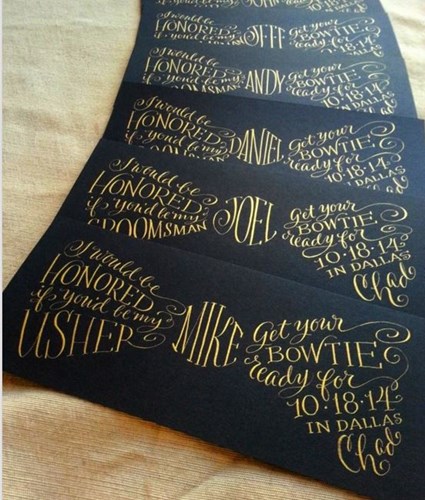 I would be
HONORED
JEFF
Get your
BOWTIE
I would be
HONORED
if you'd be my
ANDY
Get your
BOWTIE
ready for
I would be
HONORED
if you'd be my
DANIEL
Get your
BOWTIE
ready for
10·18·14
I would be
HONORED
if you'd be my
GROOMSMAN
JOEL
Get your
BOWTIE
ready for
10·18·14
IN DALLAS
Chad
I would be
HONORED
if you'd be my
USHER
MIKE
Get your
BOWTIE
ready for
10·18·14
IN DALLAS
Chad